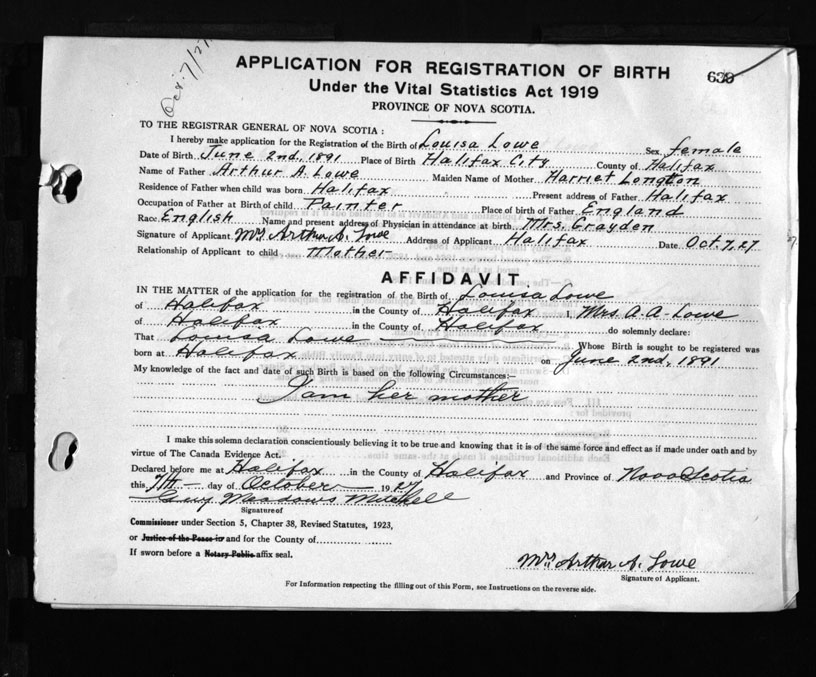 Oct. 7/27
APPLICATION FOR REGISTRATION OF BIRTH
639
Under the Vital Statistics Act 1919
PROVINCE OF NOVA SCOTIA.
TO THE REGISTRAR GENERAL OF NOVA SCOTIA :
I hereby make application for the Registration of the Birth of Louisa Lowe Sex female
Date of Birth June 2nd, 1891 Place of Birth Halifax City County of Halifax
Name of Father Arthur A. Lowe Maiden Name of Mother Harriet Longton
Residence of Father when child was born Halifax Present address of Father Halifax
Occupation of Father at Birth of child Painter Place of birth of Father England
Race English Name and present address of Physician in attendance at birth Mrs. Grayden
Signature of Applicant Mrs Arthur A. Lowe Address of Applicant Halifax Date Oct. 7, 27
Relationship of Applicant to child Mother
AFFIDAVIT.
IN THE MATTER of the application for the registration of the Birth of Louisa Lowe
of Halifax in the County of Halifax I, Mrs. A. A. Lowe
of Halifax in the County of Halifax do solemnly declare:
That Louisa Lowe Whose Birth is sought to be registered was
born at Halifax on June 2nd, 1891
My knowledge of the fact and date of such Birth is based on the following Circumstances:—
I am her mother
I make this solemn declaration conscientiously believing it to be true and knowing that it is of the same force and effect as if made under oath and by
virtue of The Canada Evidence Act.
Declared before me at Halifax in the County of Halifax and Province of Nova Scotia
this 7th day of October 1927
Guy Meadows Mitchell
Signature of
Commissioner under Section 5, Chapter 38, Revised Statutes, 1923,
or Justice of the Peace in and for the County of
If sworn before a Notary Public affix seal.
Mrs Arthur A. Lowe
Signature of Applicant.
For Information respecting the filling out of this Form, see Instructions on the reverse side.